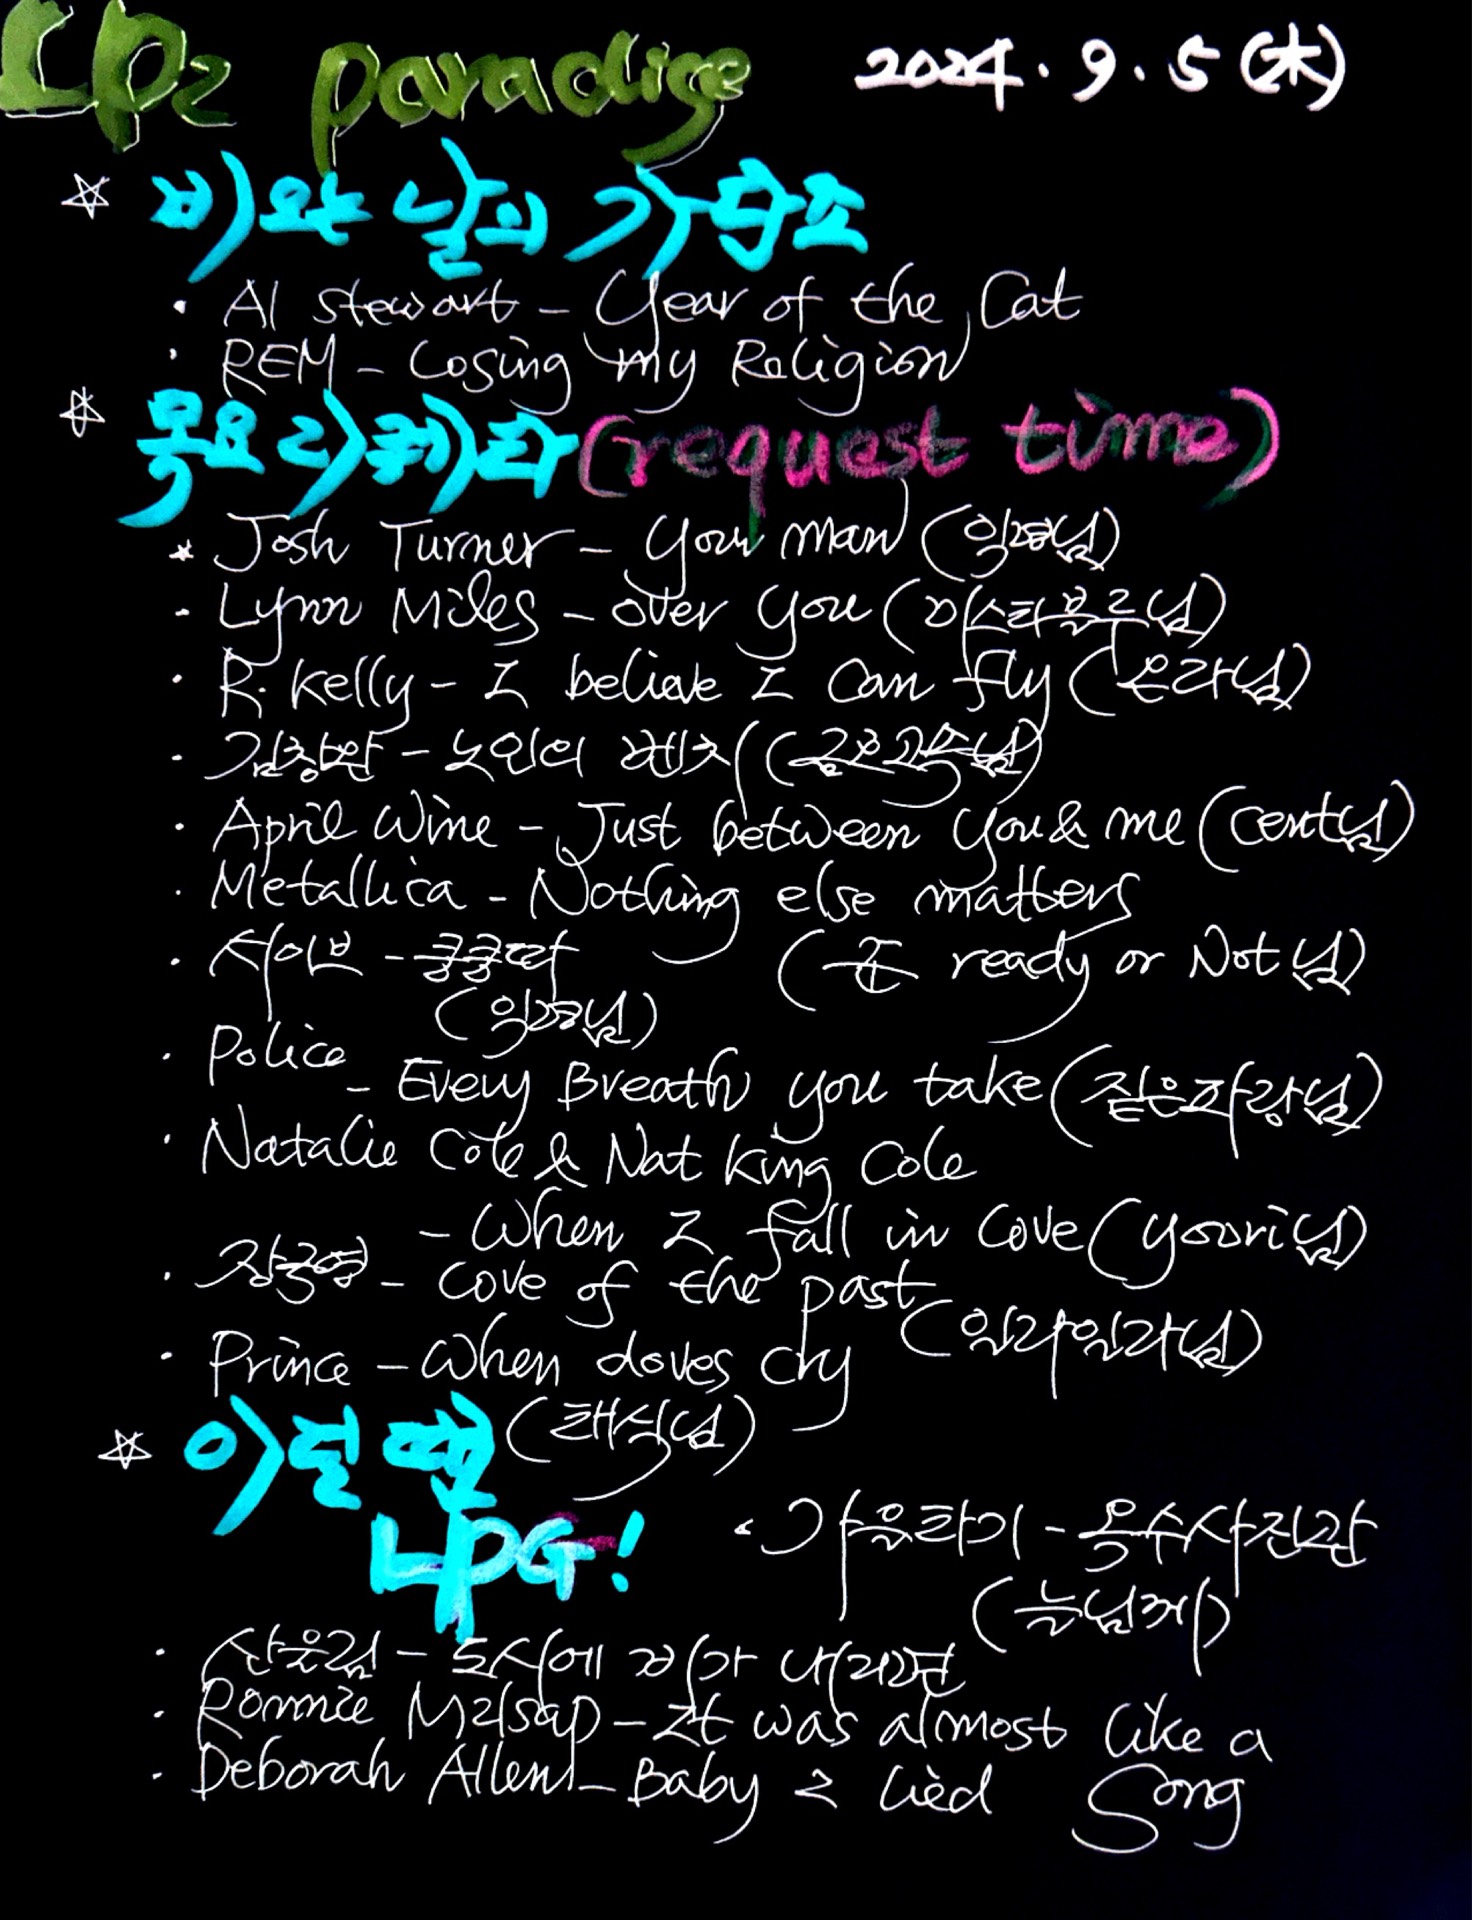 LP2 paradise 2024. 9. 5 (木)
☆ 비오는 날의 가두조
· Al Stewart - Year of the Cat
· REM - Losing my Religion
☆ 목요리퀘타 (request time)
* Josh Turner - Your man
· Lynn Miles - over you (미스타요구르님)
· R. Kelly - I believe I can fly (온라님)
· 김창완 - 노인의
· April Wine - Just between you & me (cent님)
· Metallica - Nothing else matters
· 사이보 - 쿵쿵따 (준 ready or Not 님)
· Police
- Every Breath you take (짙은파랑님)
· Natalie Cole & Nat King Cole
- When I fall in Love (yoori님)
· 장국영 - Love of the past
· Prince - When doves cry (일라일라님)
(래식님)
☆ 이럴 땐
LPG!
· 가을타기 - 옥수사진관
(눈님께)
· 산울림 - 도시에 비가 내리면
· Ronnie Milsap - It was almost like a
Song
· Deborah Allen - Baby I lied